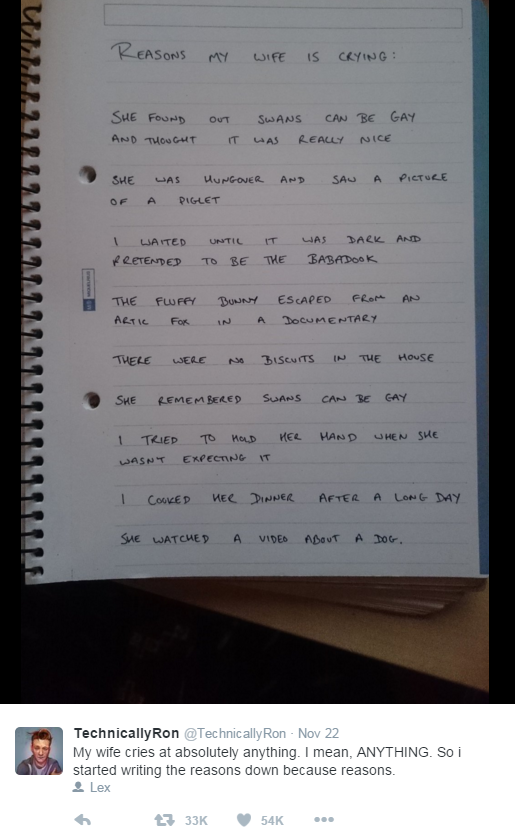 REASONS MY WIFE IS CRYING:
SHE FOUND OUT SWANS CAN BE GAY
AND THOUGHT IT WAS REALLY NICE
SHE WAS HUNGOVER AND SAW A PICTURE
OF A PIGLET
I WAITED UNTIL IT WAS DARK AND
PRETENDED TO BE THE BABADOOK
THE FLUFFY BUNNY ESCAPED FROM AN
ARTIC FOX IN A DOCUMENTARY
THERE WERE NO BISCUITS IN THE HOUSE
SHE REMEMBERED SWANS CAN BE GAY
I TRIED TO HOLD HER HAND WHEN SHE
WASNT EXPECTING IT
I COOKED HER DINNER AFTER A LONG DAY
SHE WATCHED A VIDEO ABOUT A DOG.
TechnicallyRon @TechnicallyRon · Nov 22
My wife cries at absolutely anything. I mean, ANYTHING. So i
started writing the reasons down because reasons.
Lex
33K 54K